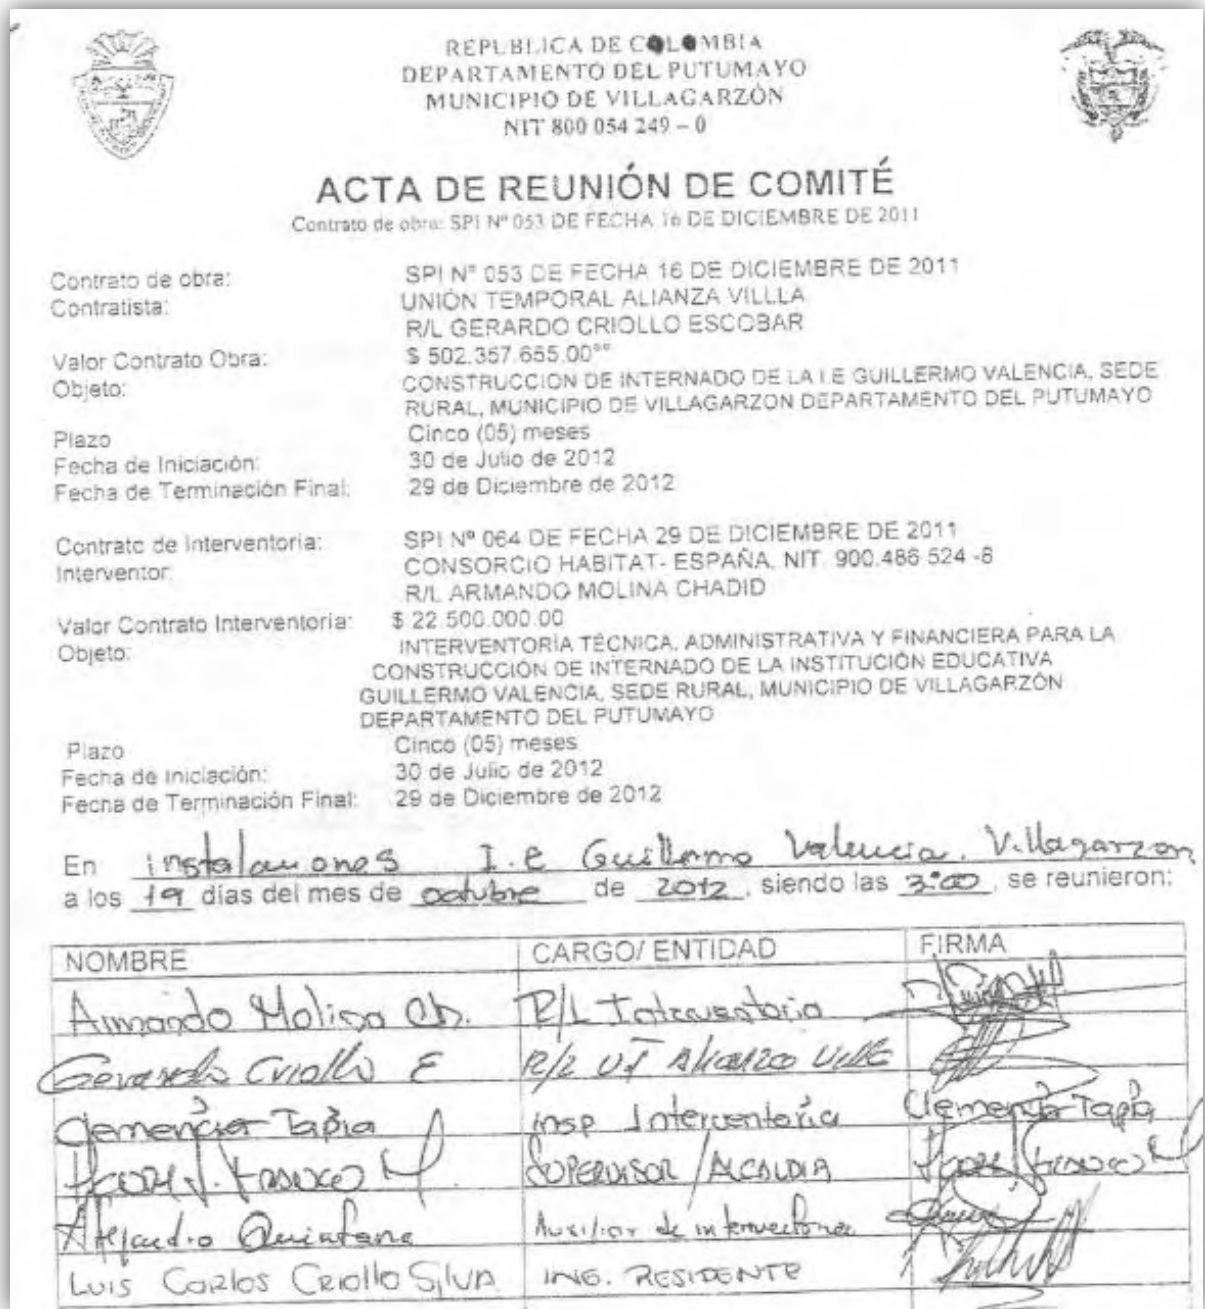 REPUBLICA DE COLOMBIA
DEPARTAMENTO DEL PUTUMAYO
MUNICIPIO DE VILLAGARZÓN
NIT 800 054 249 – 0
ACTA DE REUNIÓN DE COMITÉ
Contrato de obra: SPI Nº 053 DE FECHA 16 DE DICIEMBRE DE 2011
Contrato de obra: SPI Nº 053 DE FECHA 16 DE DICIEMBRE DE 2011
Contratista: UNIÓN TEMPORAL ALIANZA VILLLA
R/L GERARDO CRIOLLO ESCOBAR
Valor Contrato Obra: $ 502.357.655.00°°
Objeto: CONSTRUCCION DE INTERNADO DE LA I.E GUILLERMO VALENCIA, SEDE
RURAL, MUNICIPIO DE VILLAGARZON DEPARTAMENTO DEL PUTUMAYO
Plazo Cinco (05) meses
Fecha de Iniciación: 30 de Julio de 2012
Fecha de Terminación Final: 29 de Diciembre de 2012
Contrato de Interventoria: SPI Nº 064 DE FECHA 29 DE DICIEMBRE DE 2011
Interventor: CONSORCIO HABITAT- ESPAÑA, NIT. 900.486 524 -8
R/L ARMANDO MOLINA CHADID
Valor Contrato Interventoría: $ 22.500.000.00
Objeto: INTERVENTORÍA TÉCNICA, ADMINISTRATIVA Y FINANCIERA PARA LA
CONSTRUCCIÓN DE INTERNADO DE LA INSTITUCIÓN EDUCATIVA
GUILLERMO VALENCIA, SEDE RURAL, MUNICIPIO DE VILLAGARZÓN
DEPARTAMENTO DEL PUTUMAYO
Plazo Cinco (05) meses
Fecha de Iniciación: 30 de Julio de 2012
Fecha de Terminación Final: 29 de Diciembre de 2012
En instalaciones I.E Guillermo Valencia, Villagarzon
a los 19 días del mes de octubre de 2012, siendo las 3:00, se reunieron:
NOMBRE CARGO/ ENTIDAD FIRMA
Armando Molina Ch. R/L Interventoria
Gerardo Criollo E R/L UT Alianza Villa
Clemencia Tapia insp Interventoria Clemencia Tapia
SUPERVISOR / ALCALDIA
Alejandro Quintana Auxiliar de interventoria
LUIS CARLOS CRIOLLO SILVA ING. RESIDENTE